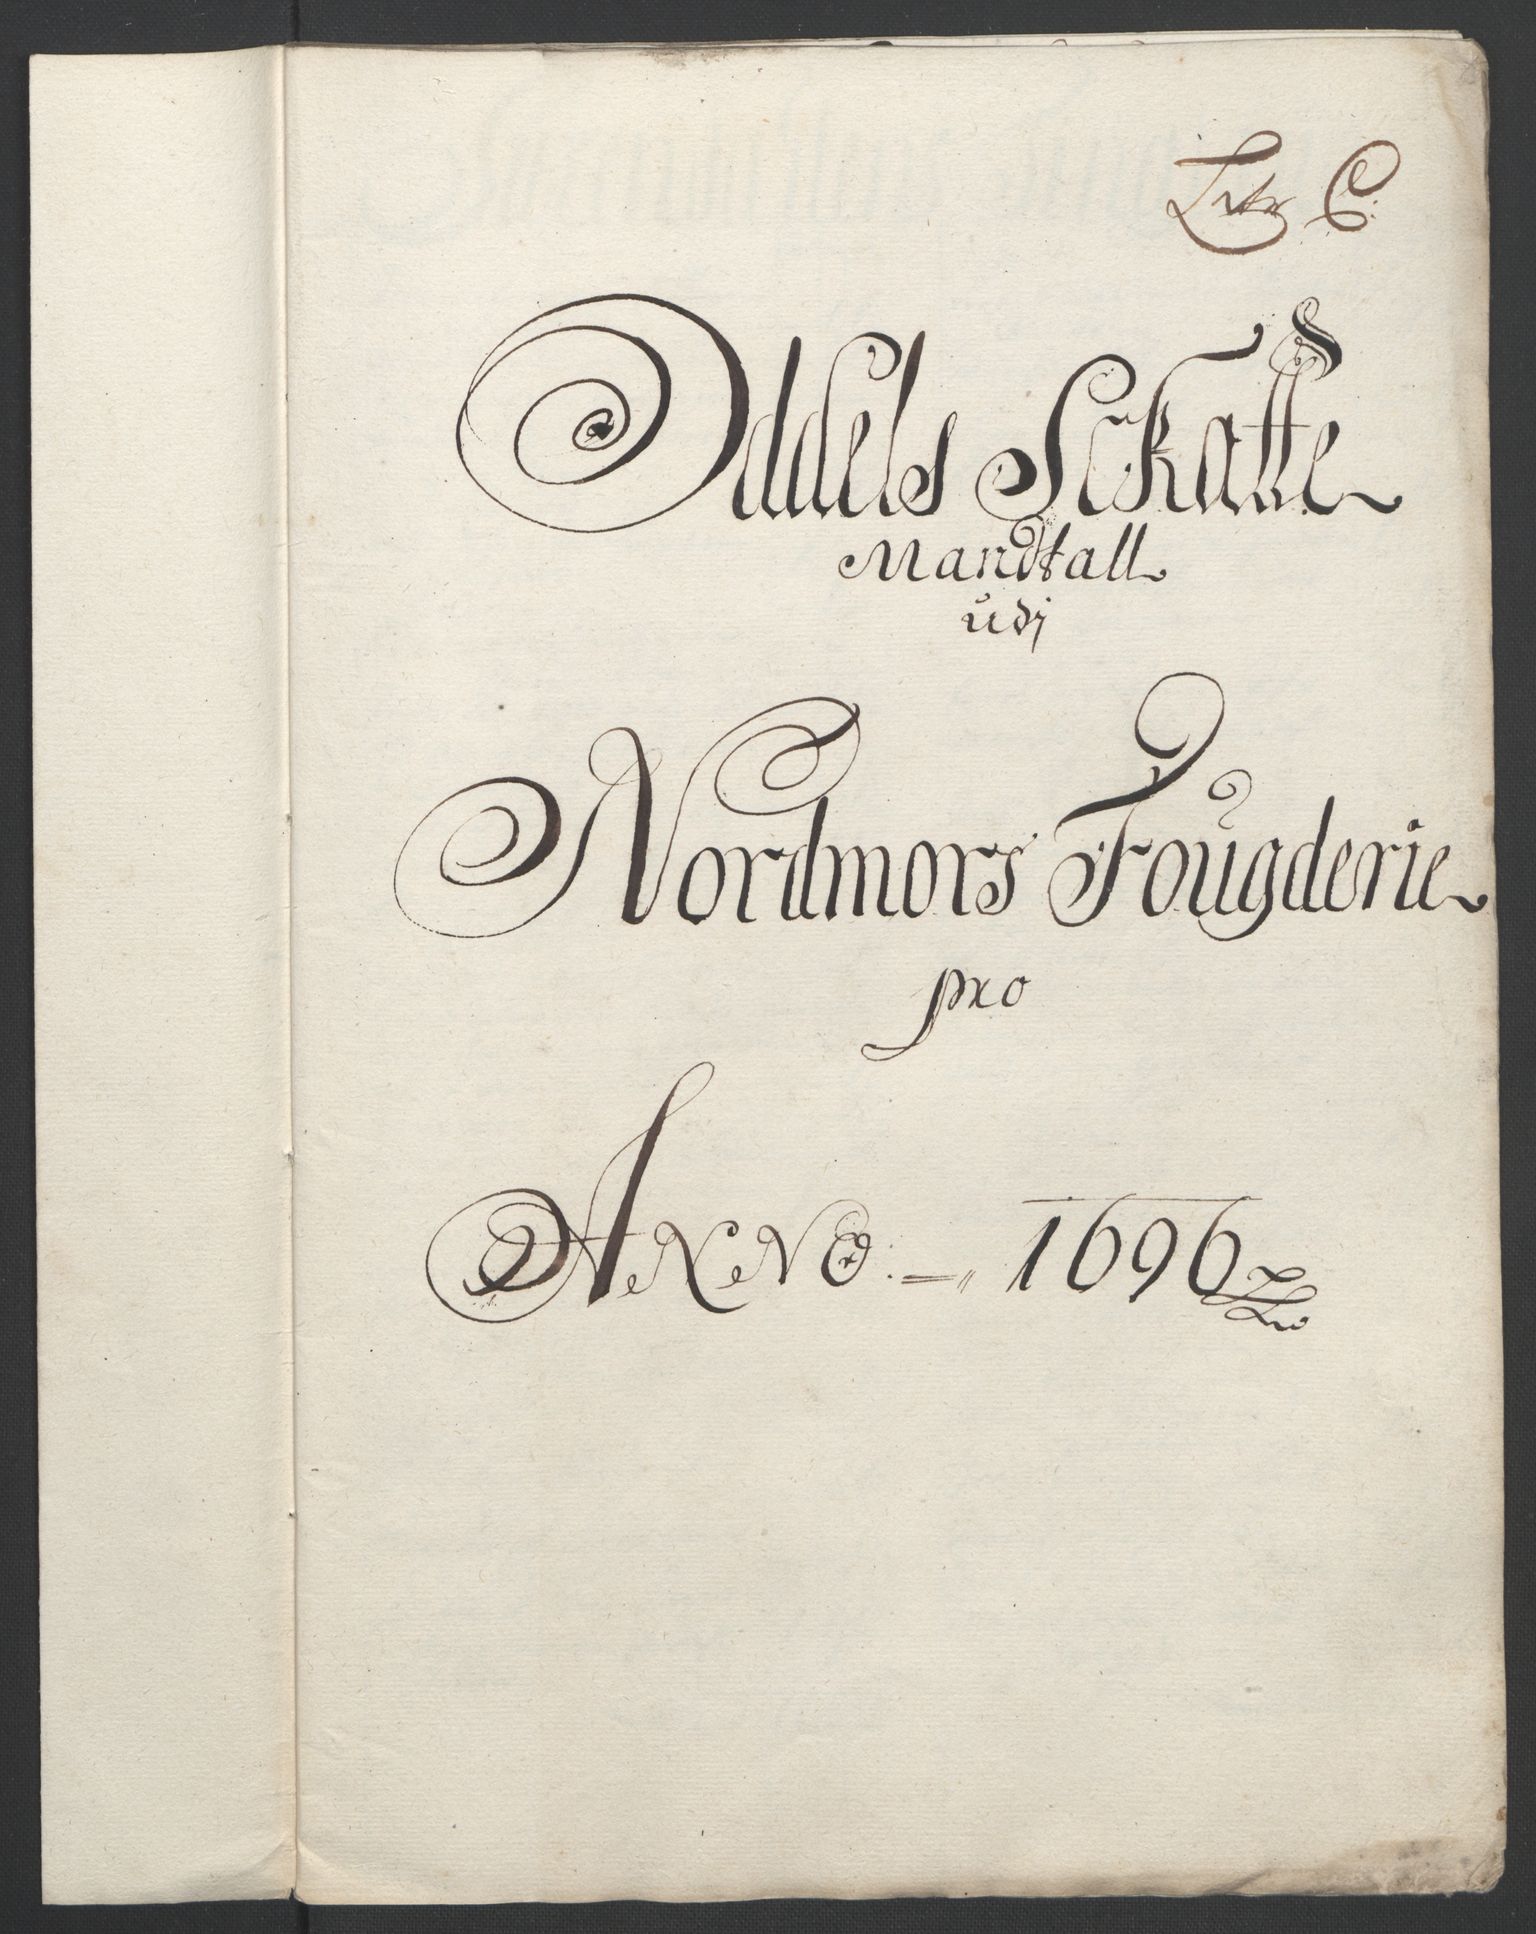 Litr C:
Oddels Schatte
Mandtall
udj
Nordmors Fougderie
pro
ANNO. 1696